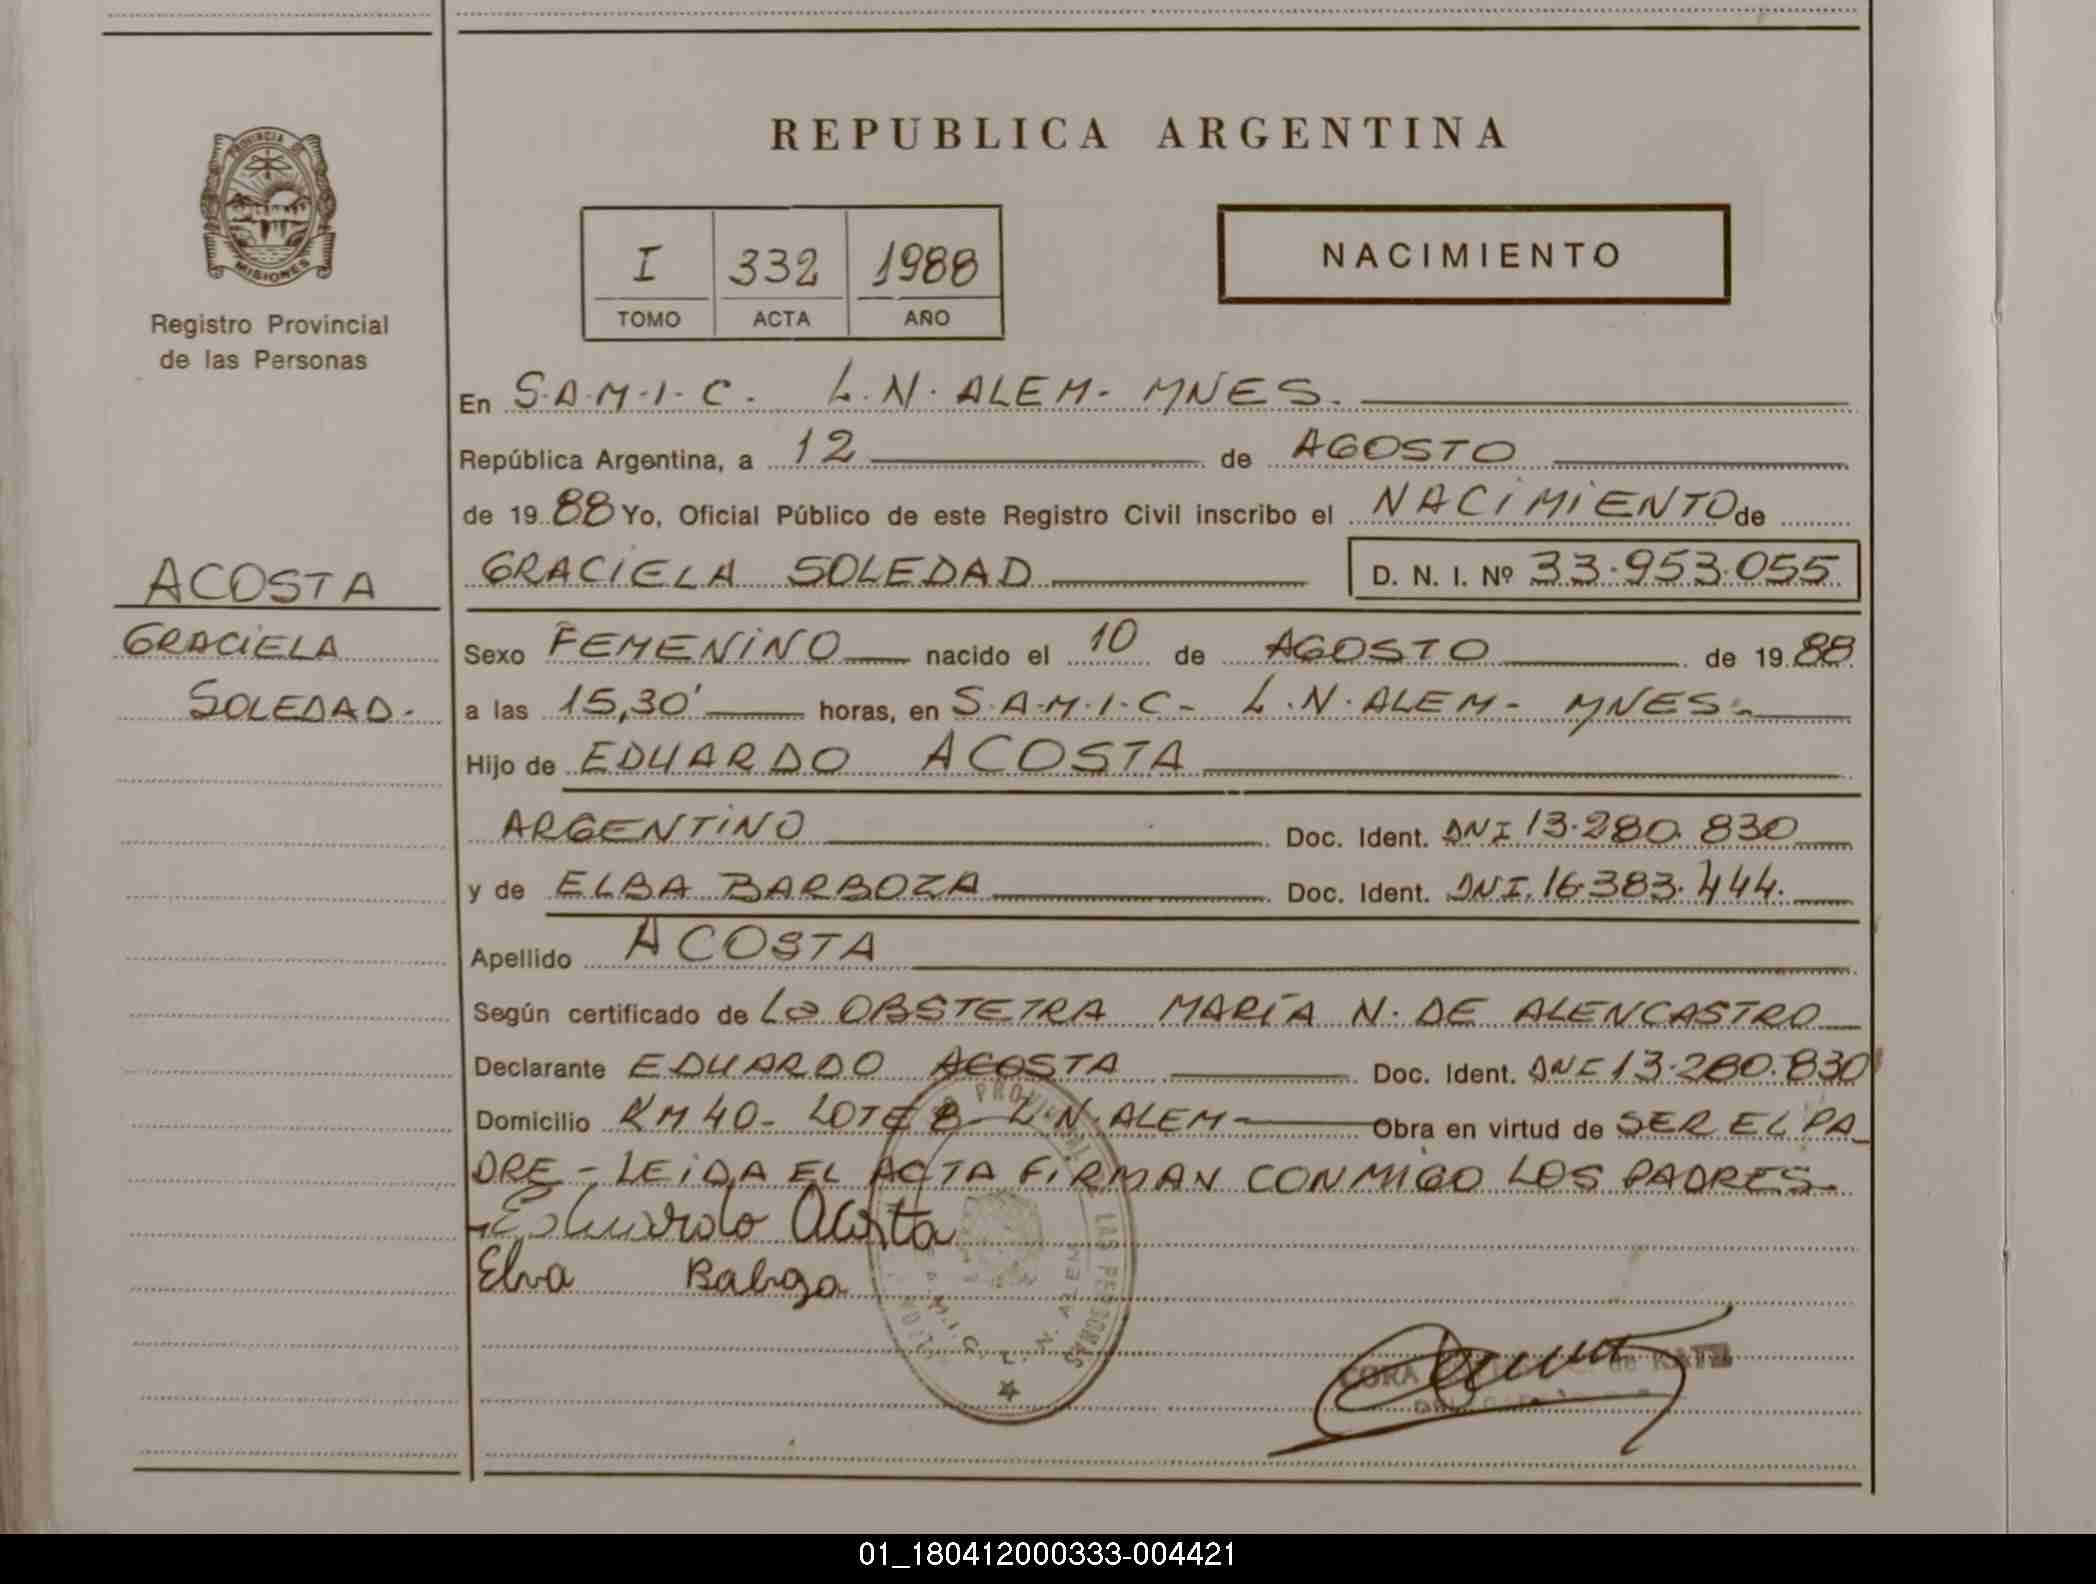 PROVINCIA DE
MISIONES
Registro Provincial
de las Personas
ACOSTA
GRACIELA
SOLEDAD.
REPUBLICA ARGENTINA
I 332 1988
TOMO ACTA AÑO
NACIMIENTO
En S.A.M.I.C. L.N. ALEM- MNES.
República Argentina, a 12 de AGOSTO
de 19 88 Yo, Oficial Público de este Registro Civil inscribo el NACIMIENTO de
GRACIELA SOLEDAD D. N. I. Nº 33.953.055
Sexo FEMENINO nacido el 10 de AGOSTO de 19 88
a las 15,30' horas, en S.A.M.I.C- L.N. ALEM- MNES.-
Hijo de EDUARDO ACOSTA
ARGENTINO Doc. Ident. DNI 13.280.830
y de ELBA BARBOZA Doc. Ident. DNI. 16.383.444.
Apellido ACOSTA
Según certificado de La OBSTETRA MARÍA N. DE ALENCASTRO
Declarante EDUARDO ACOSTA Doc. Ident. DNI 13.280.830
Domicilio KM 40- LOTE 8- L.N. ALEM- Obra en virtud de SER EL PA_
DRE - LEIDA EL ACTA FIRMAN CONMIGO LOS PADRES.
Eduardo Acosta
Elva
LAS PERSONAS
S.A.M.I.C. L. N. ALEM
CORA de KATZ
01_180412000333-004421